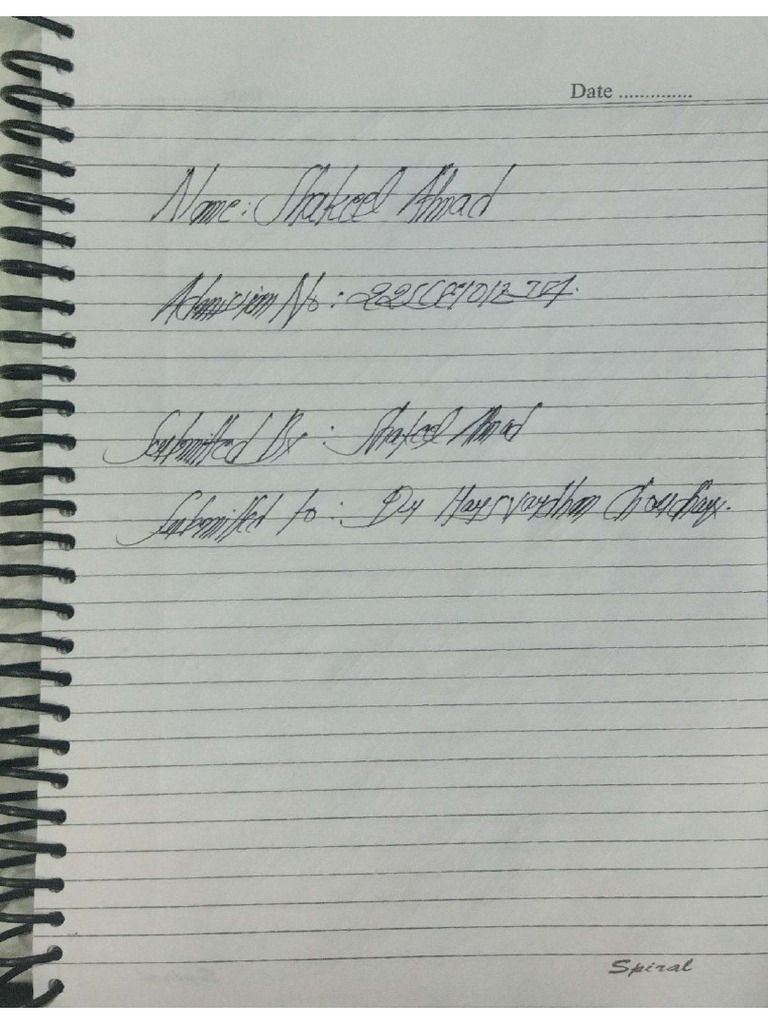 Date ..............
Name: Shakeel Ahmad
Admission No:
Submitted By : Shakeel Ahmad
Submitted to : Dr Harsvardhan Choudhary.
Spiral